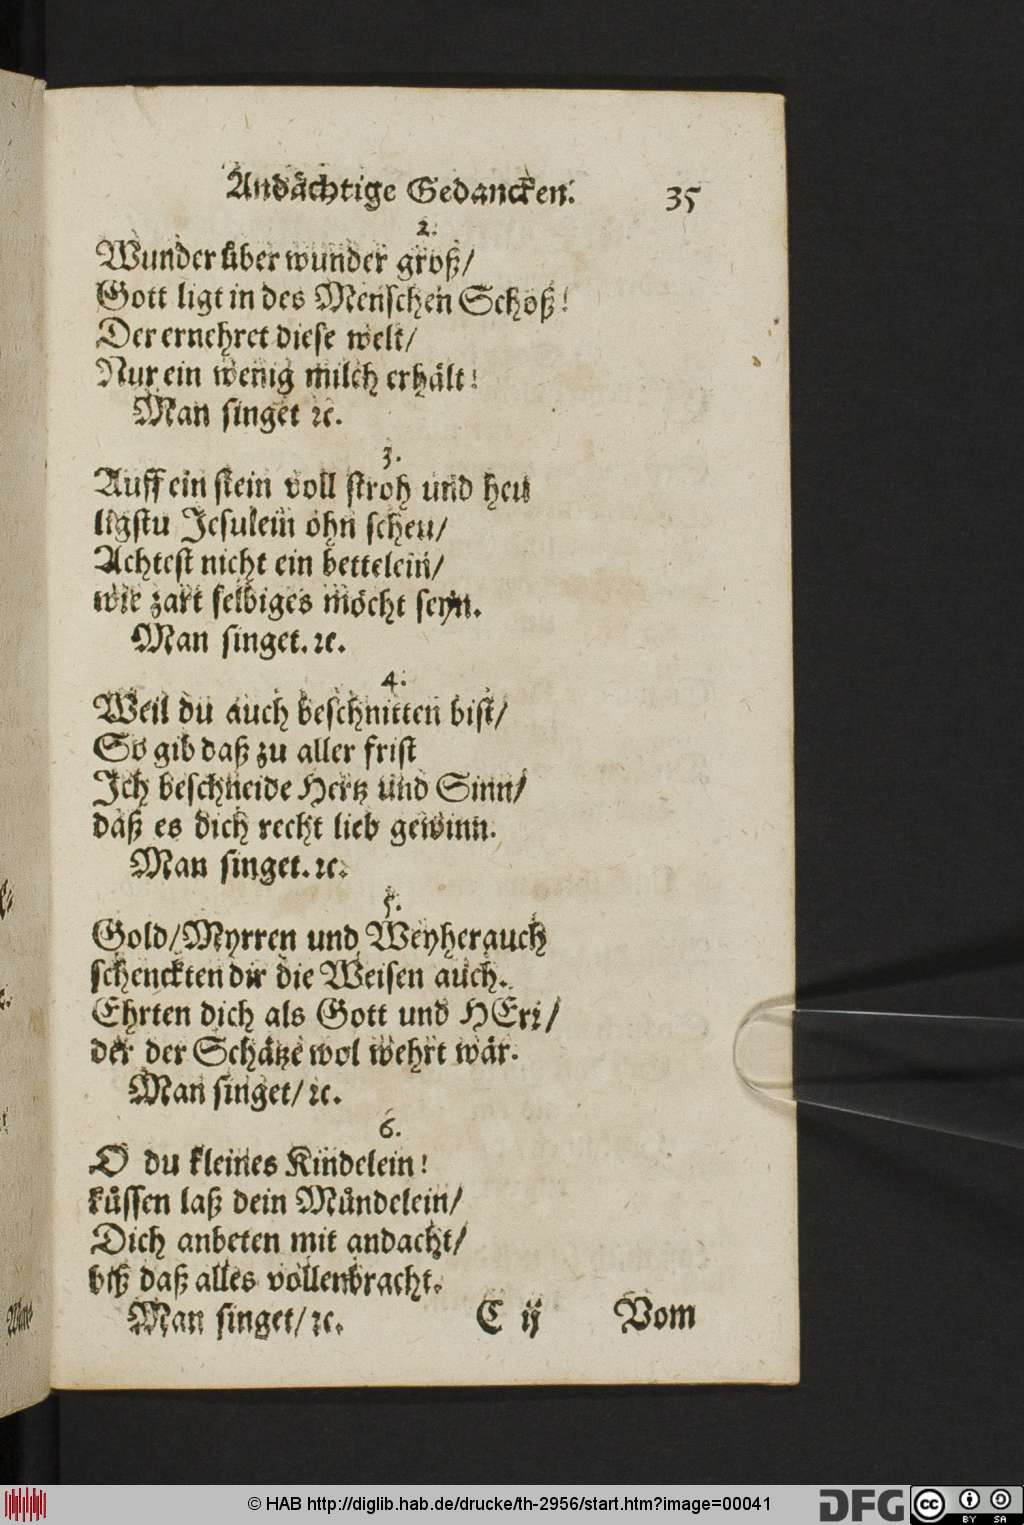 Andächtige Gedancken. 35
2.
Wunder über wunder groß/
Gott ligt in des Menschen Schoß!
Der ernehret diese welt/
Nur ein wenig milch erhält!
Man singet ꝛc.
3.
Auff ein stein voll stroh und heu
ligstu Jesulein ohn scheu/
Achtest nicht ein bettelein/
wie zart selbiges möcht seyn.
Man singet. ꝛc.
4.
Weil du auch beschnitten bist/
So gib daß zu aller frist
Ich beschneide Hertz und Sinn/
daß es dich recht lieb gewinn.
Man singet. ꝛc.
5.
Gold/Myrren und Weyherauch
schenckten dir die Weisen auch.
Ehrten dich als Gott und HErꝛ/
der der Schätze wol wehrt wär.
Man singet/ ꝛc.
6.
O du kleines Kindelein!
küssen laß dein Mündelein/
Dich anbeten mit andacht/
biß daß alles vollenbracht.
Man singet/ ꝛc. C ij Vom
© HAB http://diglib.hab.de/drucke/th-2956/start.htm?image=00041
DFG
cc BY SA